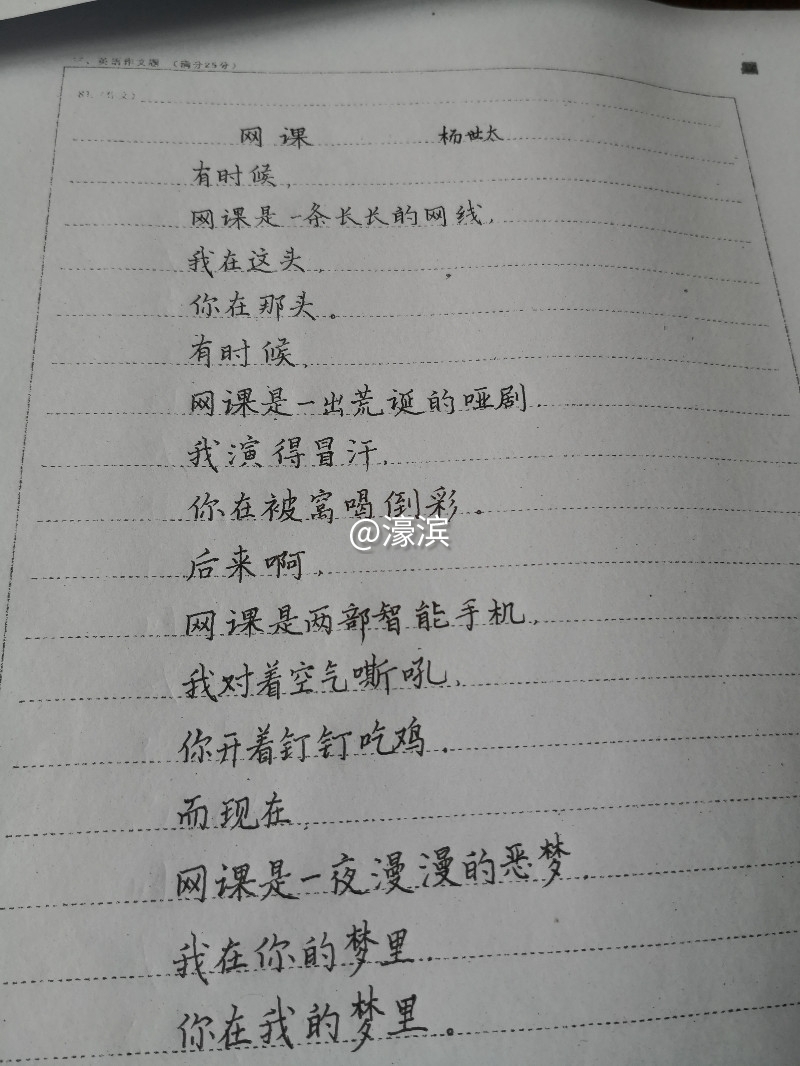 、英语作文题 (满分25分)
81.(作文)
网课 杨世太
有时候,
网课是一条长长的网线,
我在这头,
你在那头。
有时候,
网课是一出荒诞的哑剧.
我演得冒汗,
你在被窝喝倒彩。
@濠滨
后来啊,
网课是两部智能手机,
我对着空气嘶吼,
你开着钉钉吃鸡.
而现在,
网课是一夜漫漫的恶梦.
我在你的梦里.
你在我的梦里。